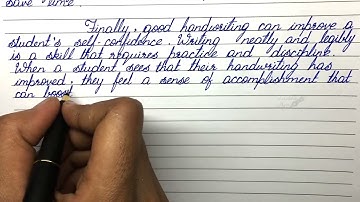 save time.
Finally, good handwriting can improve a
student's self-confidence. Writing neatly and legibly
is a skill that requires practice and discipline.
When a student sees that their handwriting has
improved, they feel a sense of accomplishment that
can boost